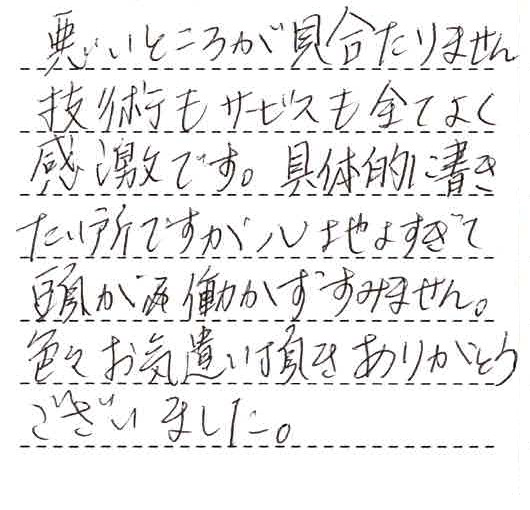 悪いところが見合たりません
技術もサービスも全てよく
感激です。具体的に書き
たい所ですが心地よすぎて
頭が再働かずすみません。
色々お気遣い頂きありがとう
ございました。